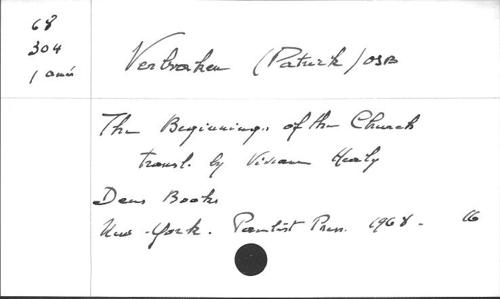 68
304
Verbraken (Patrick) OSB
The Beginnings of the Church
transl. by Vivian Healy
Deus Books
New-York. Paulist Press. 1968.